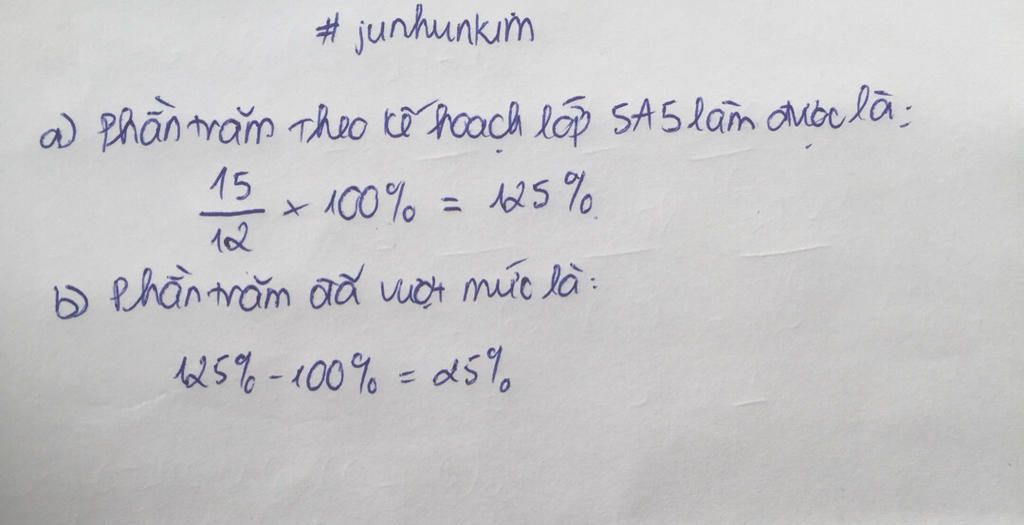 # junhunkim
a) Phần trăm theo kế hoạch lớp 5A5 làm được là:
15/12 × 100% = 125%
b) Phần trăm đã vượt mức là:
125% - 100% = 25%